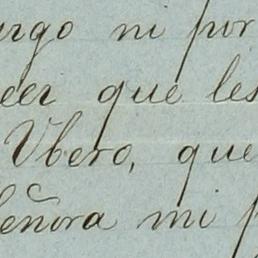 urgo ni por
eer que les
Ubero, que
Señora mi p